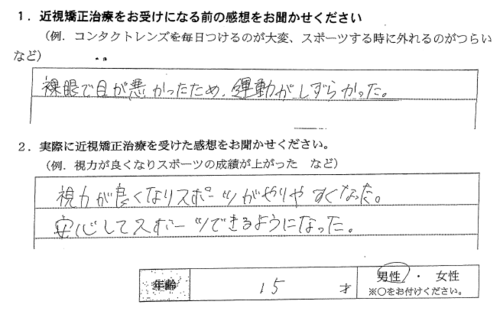 １．近視矯正治療をお受けになる前の感想をお聞かせください
（例．コンタクトレンズを毎日つけるのが大変、スポーツする時に外れるのがつらい
など）
裸眼で目が悪かったため、運動がしずらかった。
２．実際に近視矯正治療を受けた感想をお聞かせください。
（例．視力が良くなりスポーツの成績が上がった　など）
視力が良くなりスポーツがやりやすくなった。
安心してスポーツできるようになった。
年齢　15　才　男性　・　女性
※○をお付けください。